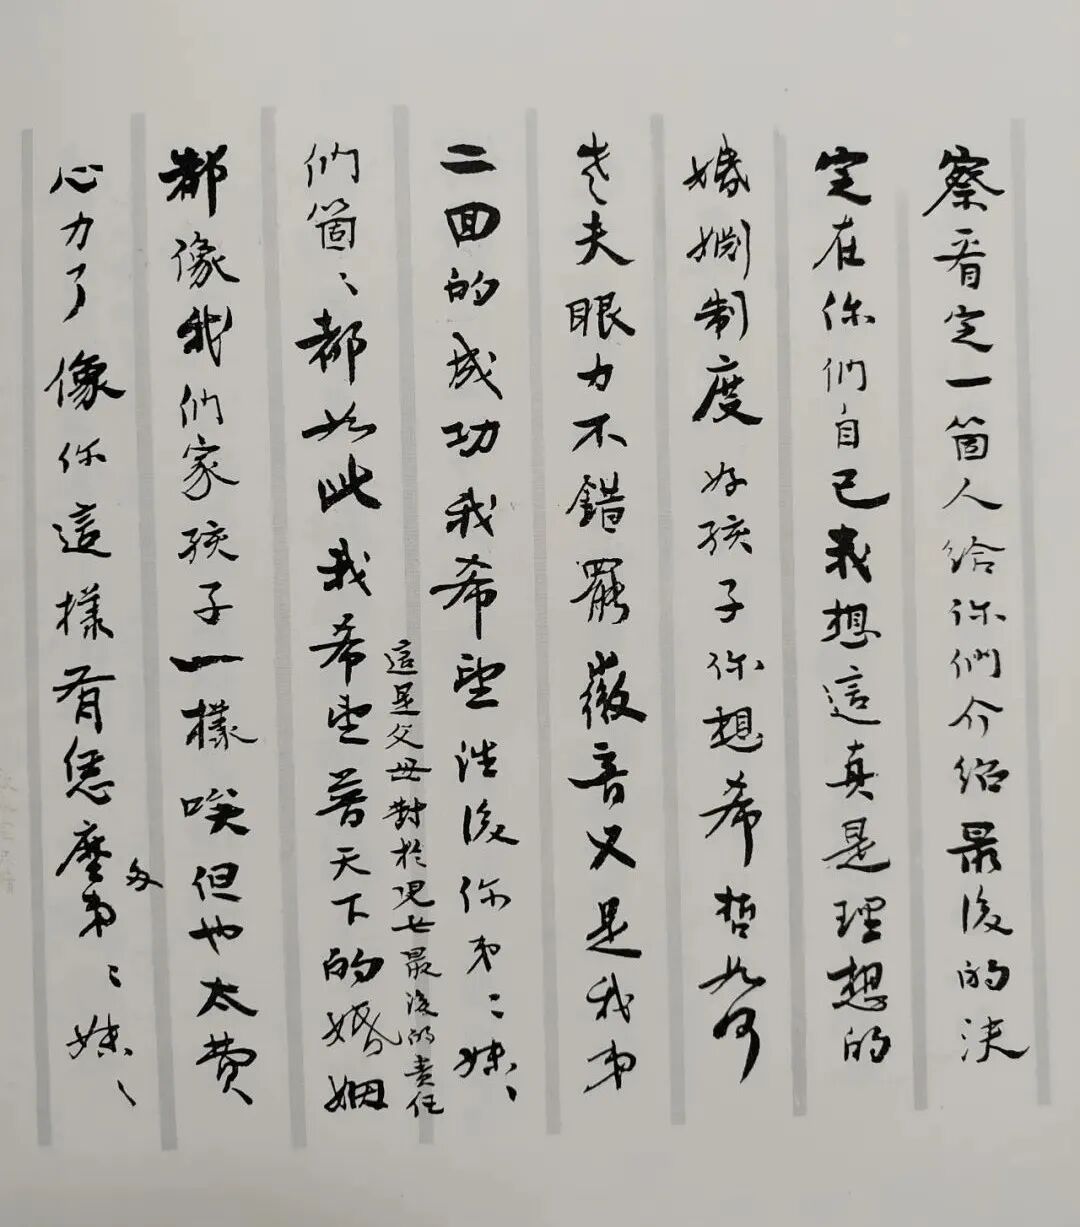 察看定一箇人給你們介紹最後的決
定在你們自己我想這真是理想的
婚姻制度好孩子你想希哲如何
老夫眼力不錯罷徽音又是我弟
二回的成功我希望往後你弟〻妹〻
們箇〻都如此我希望普天下的婚姻
這是父母對於兒女最後的責任
都像我們家孩子一樣唉但也太費
心力了像你這樣有恁麼多弟〻妹〻